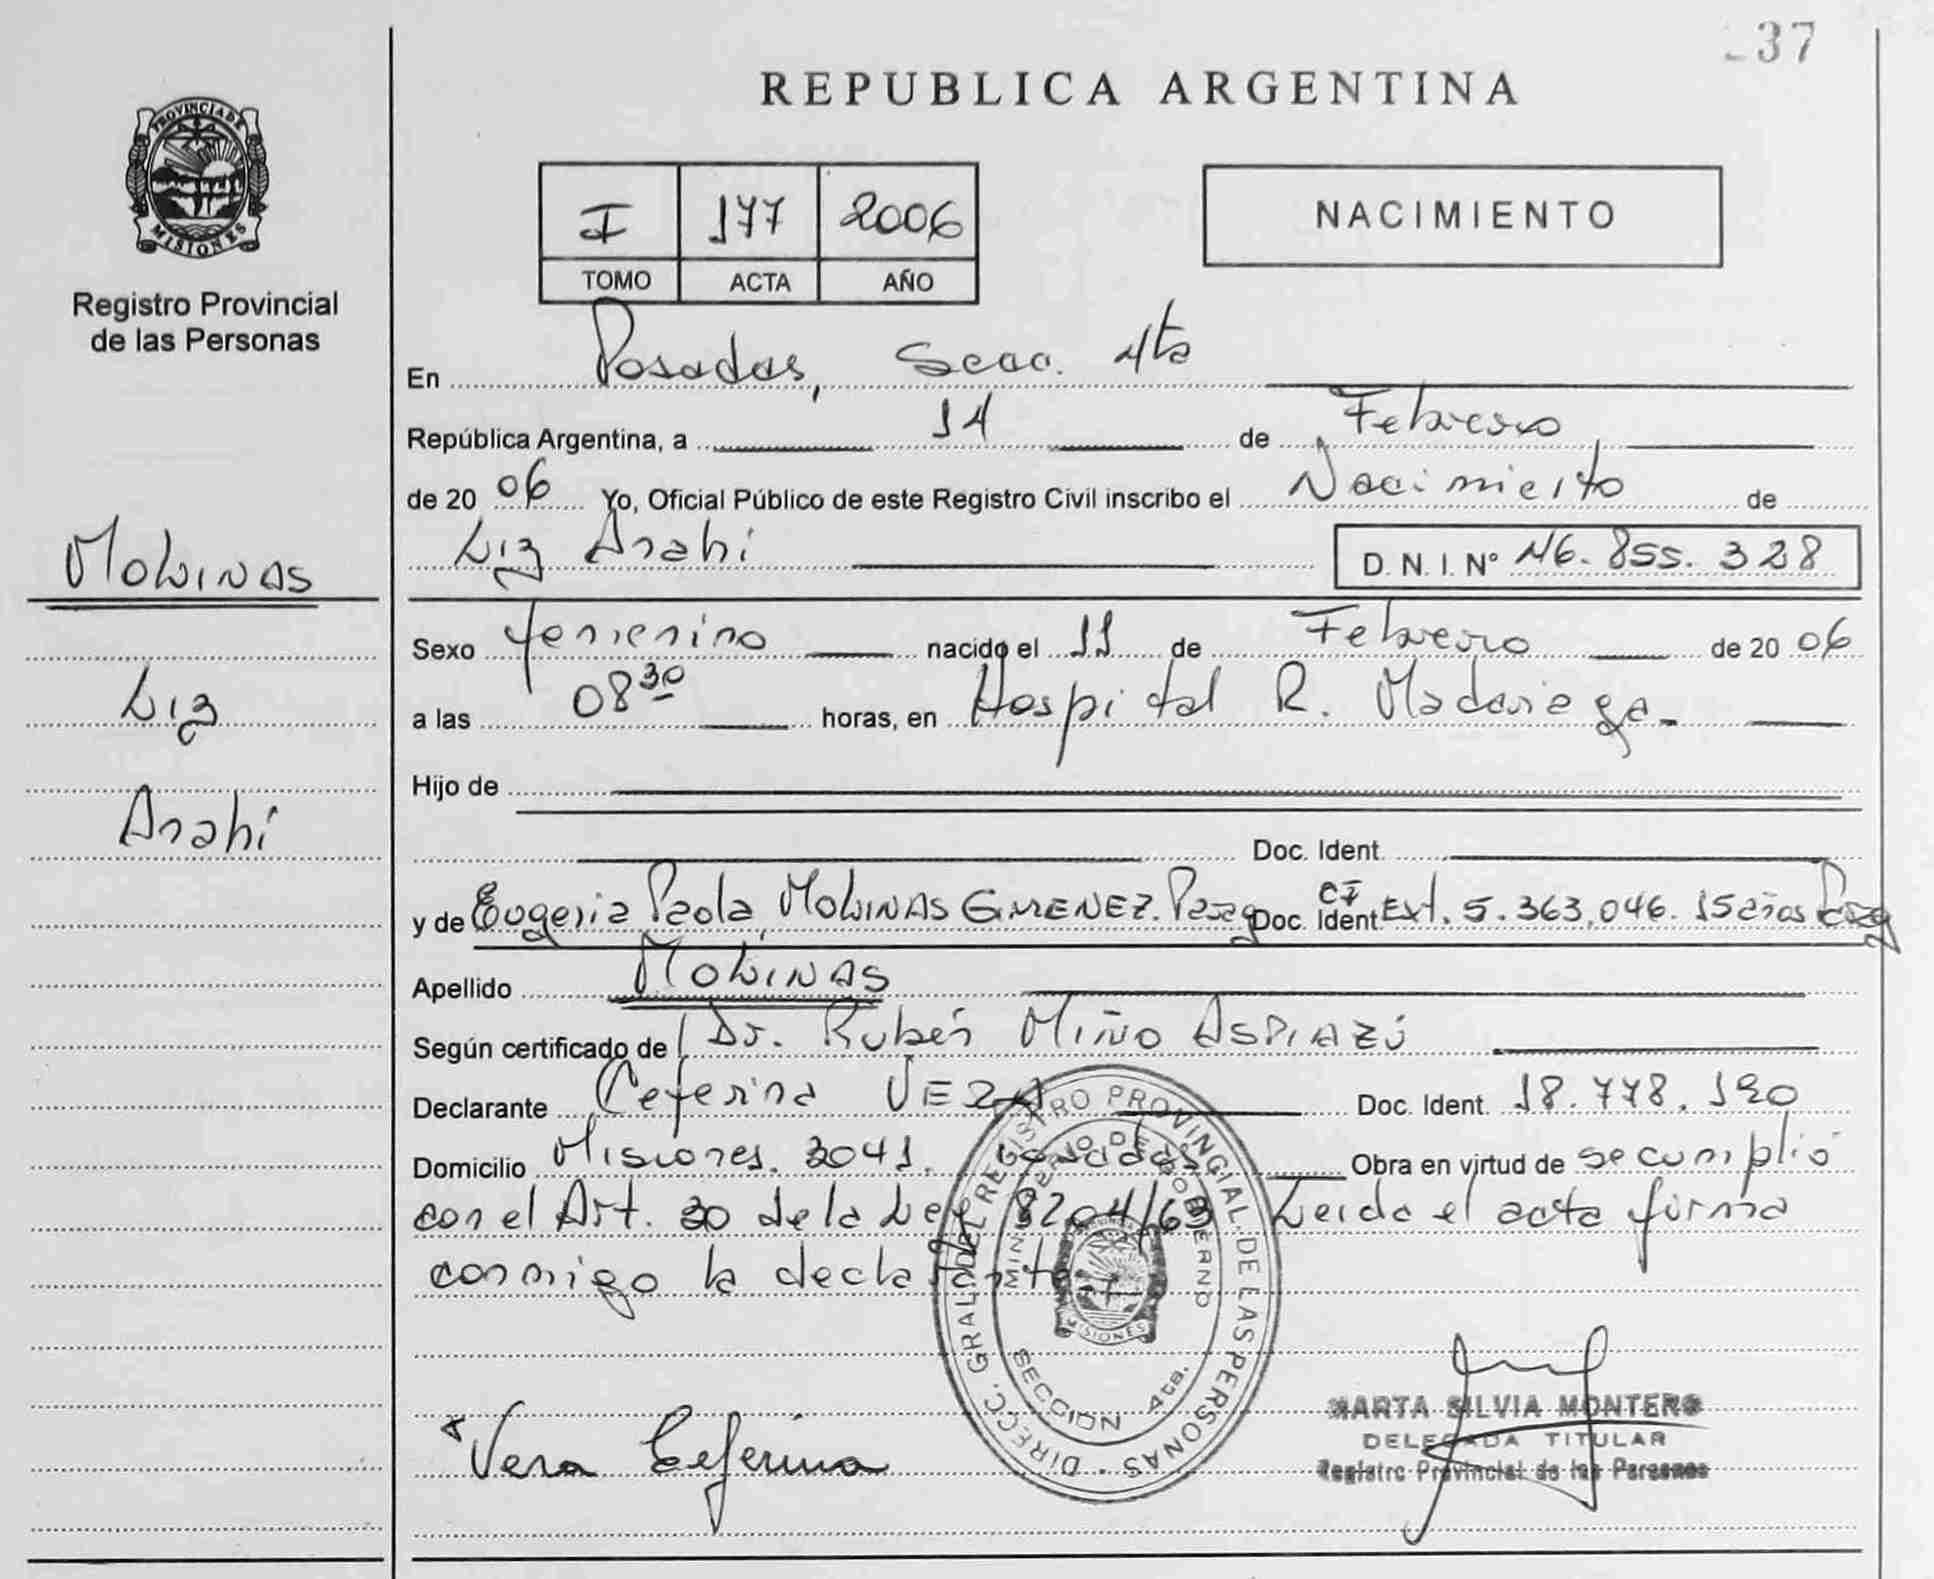 237
REPUBLICA ARGENTINA
PROVINCIA DE
MISIONES
Registro Provincial
de las Personas
I 177 2006
TOMO ACTA AÑO
NACIMIENTO
En Posadas, Secc. 4ta
República Argentina, a 14 de Febrero
de 20 06 Yo, Oficial Público de este Registro Civil inscribo el Nacimiento de
Liz Anahi D. N. I. N° 46.855.328
MOLINAS
Liz
Anahi
Sexo femenino nacido el 11 de Febrero de 20 06
a las 08 30 horas, en Hospital R. Madariaga
Hijo de
Doc. Ident.
y de Eugenia Paola MOLINAS GIMENEZ. Parag Doc. Ident CI Ext. 5.363.046. 15 años Parag
Apellido MOLINAS
Según certificado de Dr. Rubén MIÑO ASPIAZÚ
Declarante Ceferina VERA Doc. Ident. 18.778.190
Domicilio Misiones. 3041. Posadas Obra en virtud de se cumplió
con el Art. 30 de la Ley 8204/63 Leida el acta firma
conmigo la declarante
DIRECC. GRAL. DEL REGISTRO PROVINCIAL DE LAS PERSONAS
MINISTERIO DE GOBIERNO
MISIONES
SECCION 4ta.
Vera Ceferina
MARTA SILVIA MONTERO
DELEGADA TITULAR
Registro Provincial de las Personas